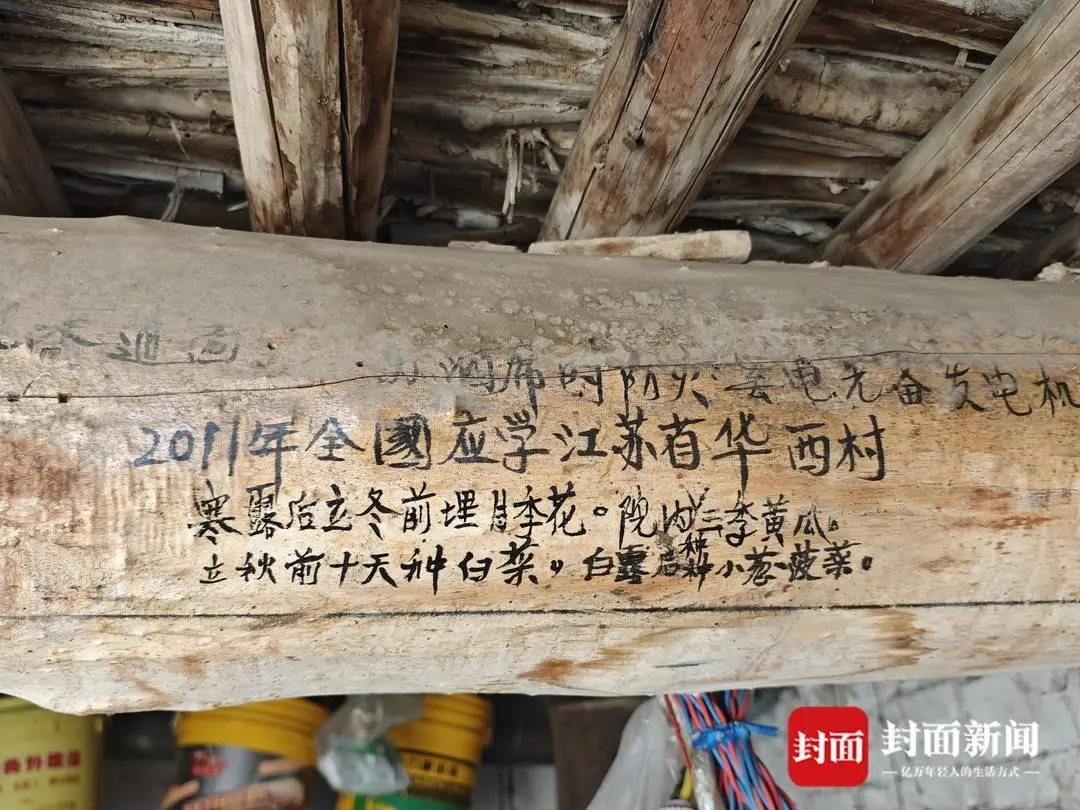 酒席时防火 丢电尤奋发电机
2011年全國应学江苏省华西村
寒露后立冬前埋月季花。院内兰季黄瓜。
立秋前十天种白菜。白露后种小葱、菠菜。
封面 封面新闻
亿万年轻人的生活方式